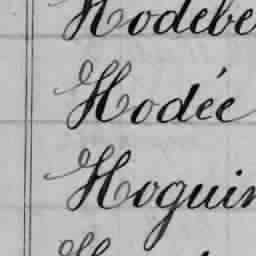 Hodebe
Hodée
Hoguin